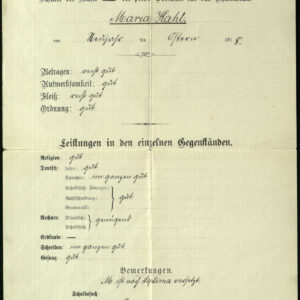 Maria Kahl.
von Neujahr bis Ostern 191 8.
Betragen: recht gut
Aufmerksamkeit: gut
Fleiß: recht gut
Ordnung: gut
Leistungen in den einzelnen Gegenständen.
Religion: gut
Deutsch: Lesen: gut
Sprechen: im ganzen gut
Schriftliche Übungen:
Rechtschreibung: gut
Grammatik:
Rechnen: Mündlich: genügend
Schriftlich:
Erdkunde: —
Schreiben: im ganzen gut
Gesang: gut
Bemerkungen.
M ist nach Septima versetzt.
Schulbesuch